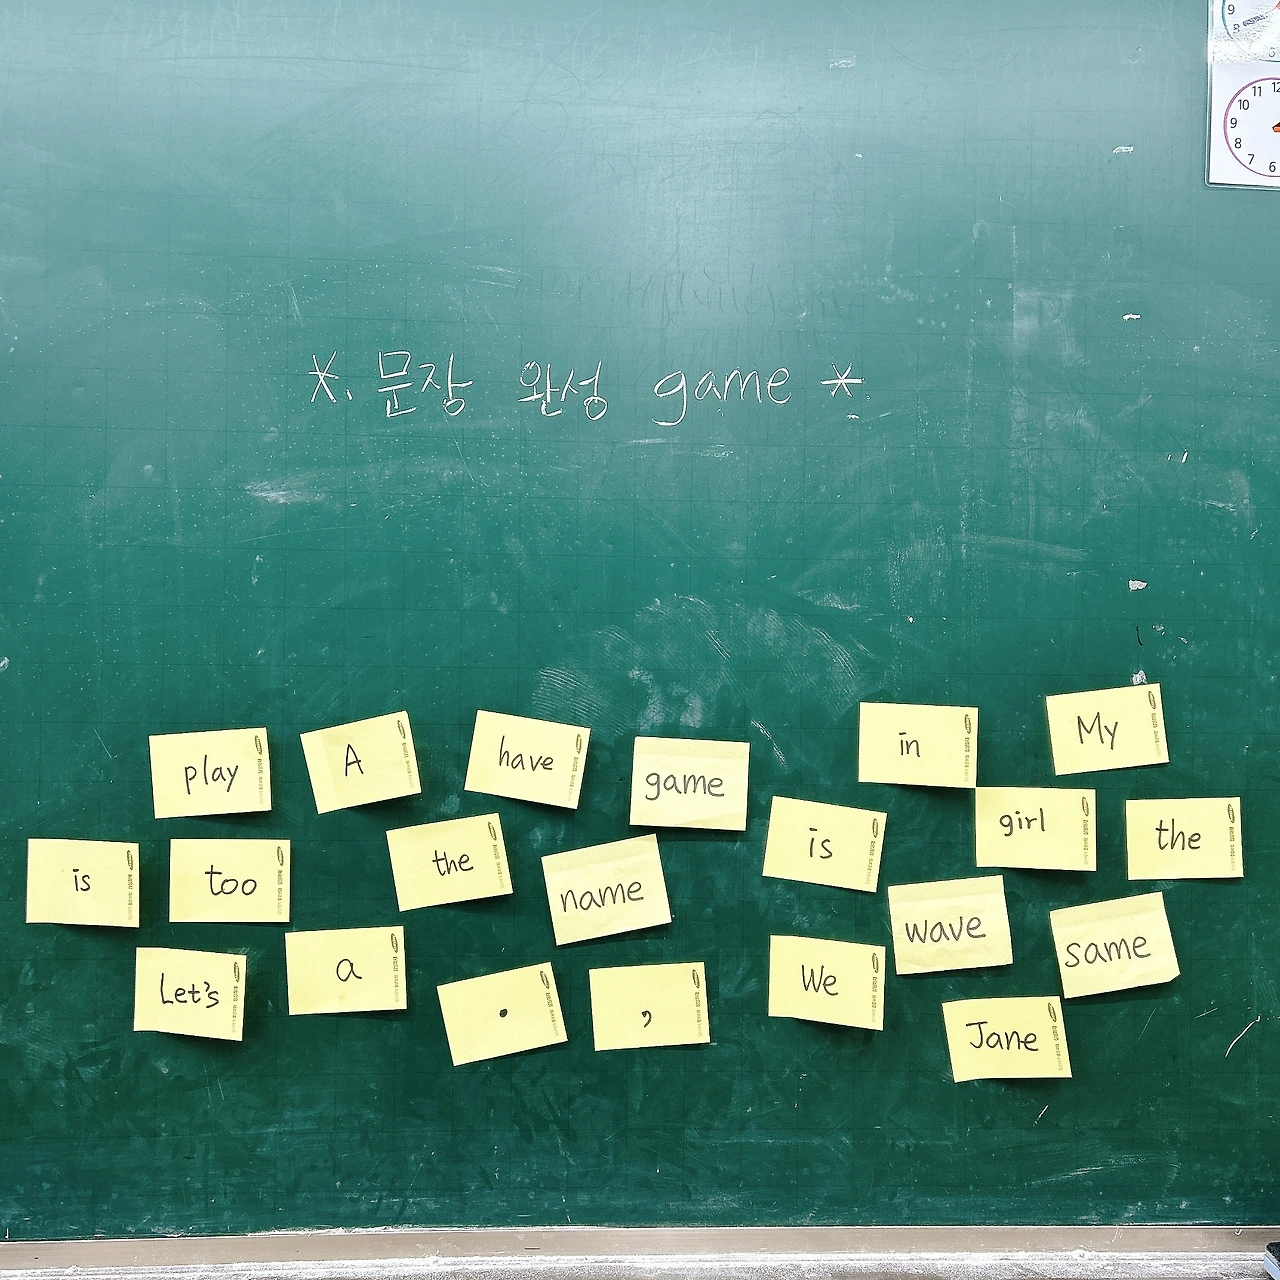 *. 문장 완성 game *
play A have game in My
is too the name is girl the
Let's a . , We wave same
Jane
9
3
11 12
10
9
8
7 6